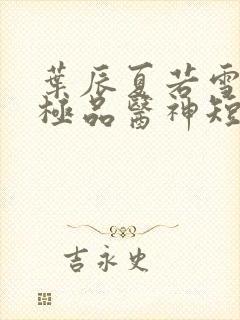 葉辰夏若雪
極品醫神短
吉永史